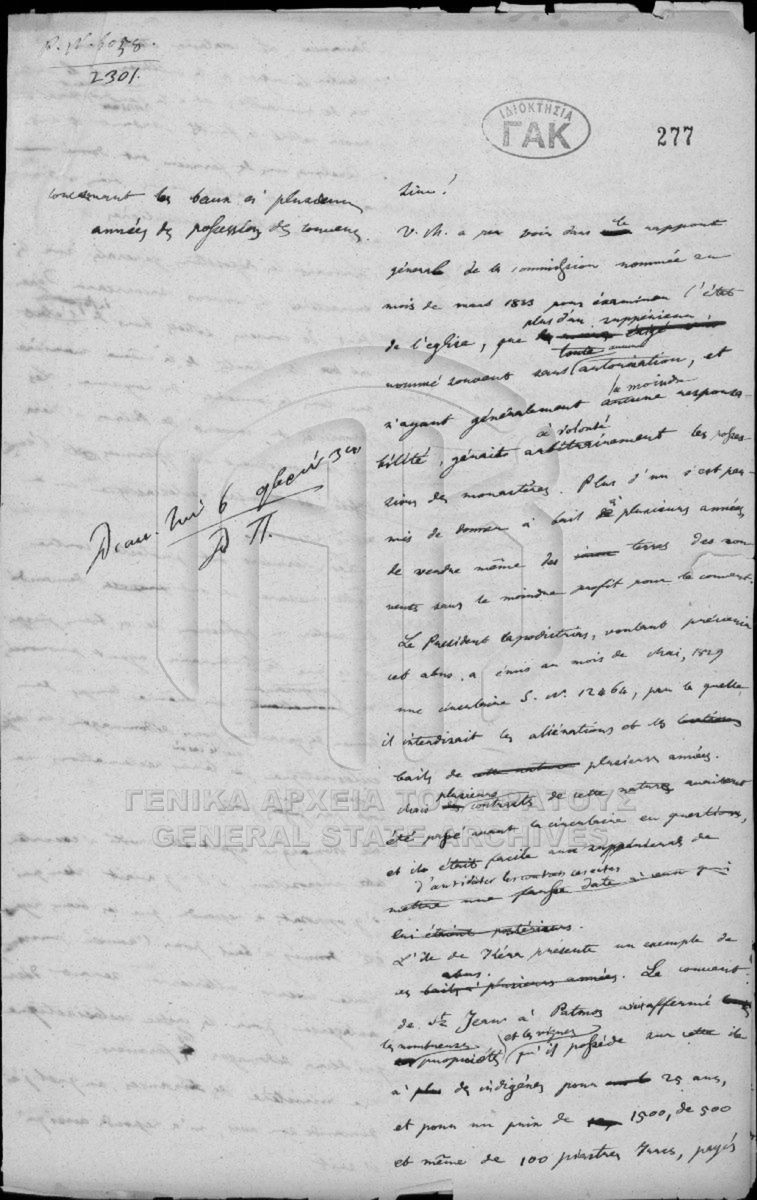 2301.
ΙΔΙΟΚΤΗΣΙΑ
ΓΑΚ
277
concernant les baux à plusieurs
années des possessions des couvens
Sire!
V. M. a pu voir dans le rapport
général de la commission nommée au
mois de mars 1833 pour examiner l'état
plus d'un supérieur,
de l'eglise, que
toute
nommé souvent sans autorisation, et
la moindre
n'ayant généralement aucune responsa-
à volonté
bilité, gérait arbitrairement les posses-
sions des monastères. Plus d'un s'est per-
mis de donner à bail à plusieurs années
de vendre même des terres des cou
vents sans le moindre profit pour le couvent.
Le President Capodistrias, voulant prévenir
cet abus, a émis au mois de Mai, 1829
une circulaire S. N. 12464, par la quelle
il interdisait les aliénations et les
bails de cette nature plusieurs années.
Mais plusieurs contrats de cette nature avaient
été passé avant la circulaire en question,
et il était facile aux supérieurs de
d'antidater les contrats
mettre une fausse date à ceux qui
lui étaient postérieurs.
L'île de présente un exemple de
abus.
ces bails à plusieurs années. Le couvent
de St Jean à Patmos affermé
les nombreuses et les vignes
propriétés qu'il possède sur cette île
à des indigènes pour 25 ans,
et pour un prix de 1500, de 500
et même de 100 piastres Turcs, payés
ΓΕΝΙΚΑ ΑΡΧΕΙΑ ΤΟΥ ΚΡΑΤΟΥΣ
GENERAL STATE ARCHIVES